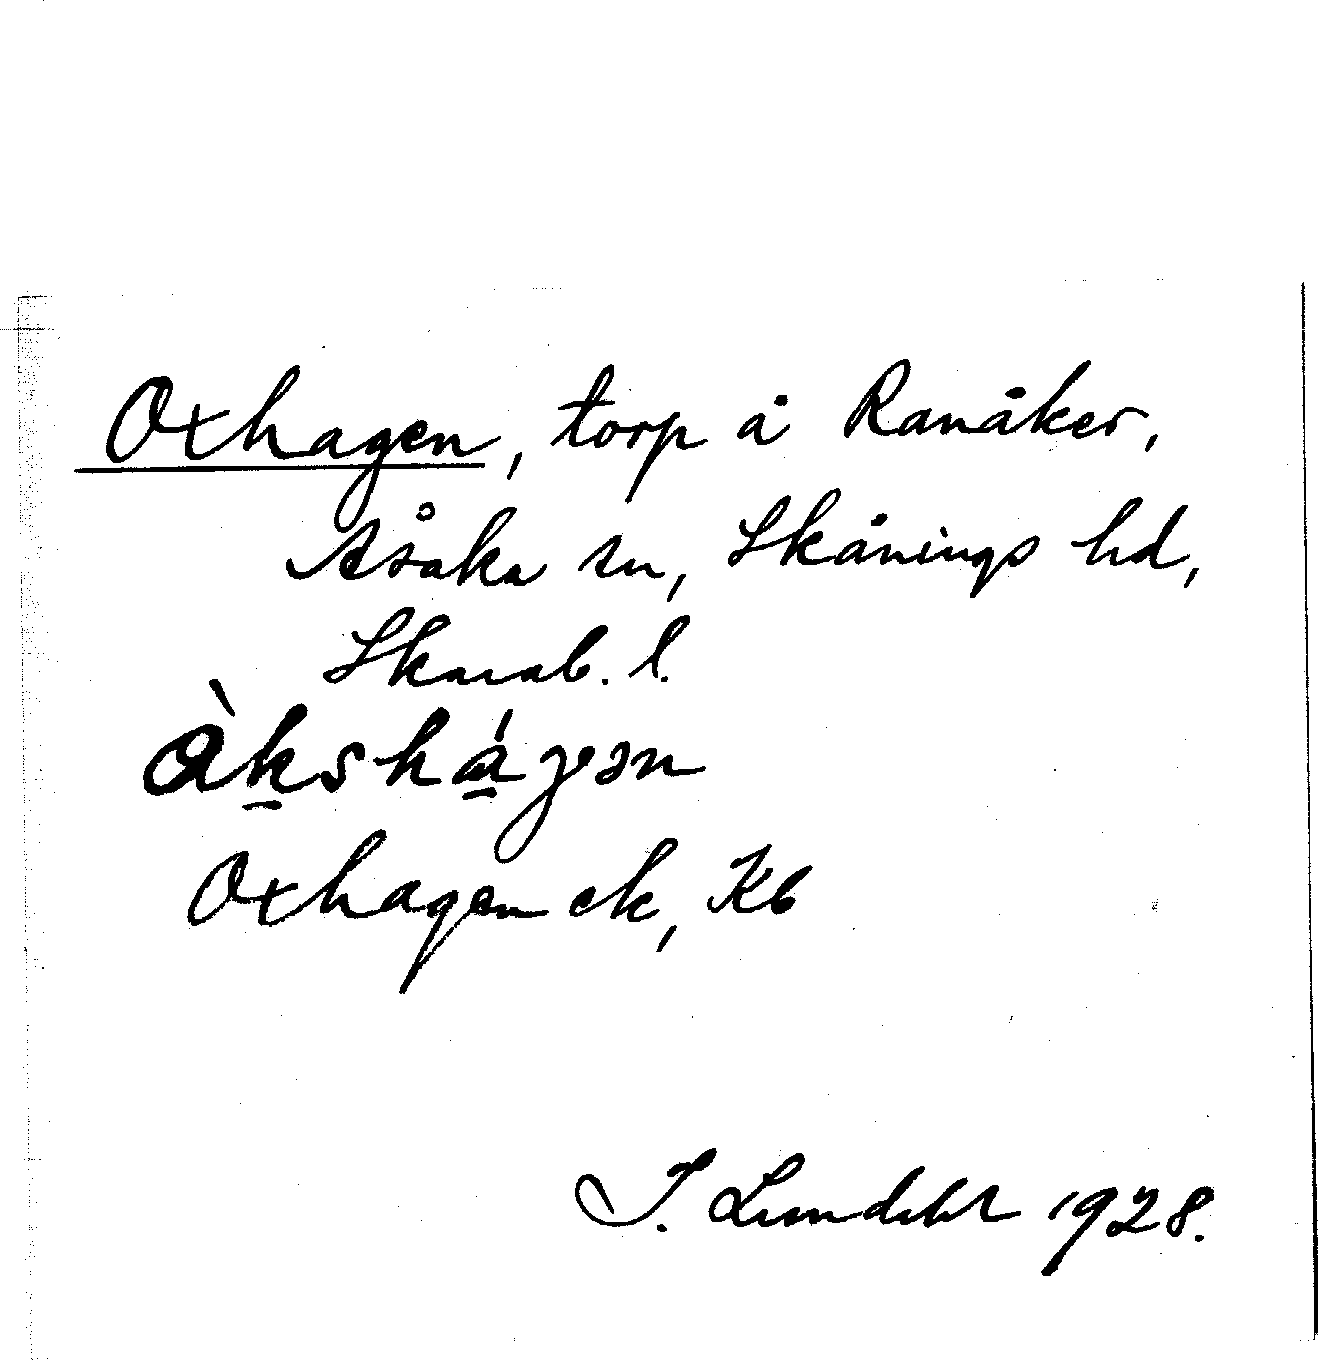 Oxhagen, torp å Ranåker,
Åsaka sn, Skånings hd,
Skarab. l.
àkshágən
Oxhagen ek, Kb
I. Lundahl 1928.